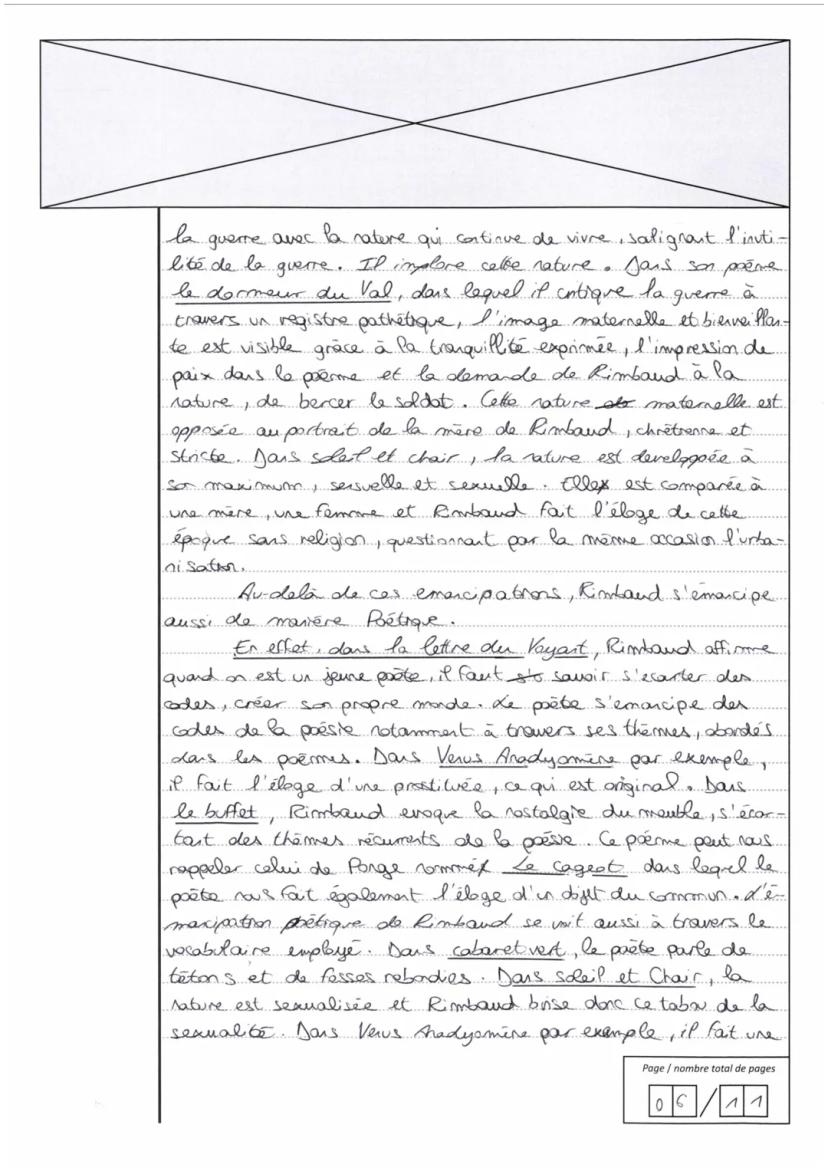 la guerre avec la nature qui continue de vivre, salignant l'inuti-
lité de la guerre. Il implore cette nature. Dans son poème
le dormeur du Val, dans lequel il critique la guerre à
travers un registre pathétique, l'image maternelle et bienveillan-
te est visible grâce à la tranquillité exprimée, l'impression de
paix dans le poème et la demande de Rimbaud à la
nature, de bercer le soldat. Cette nature maternelle est
opposée au portrait de la mère de Rimbaud, chrétienne et
stricte. Dans soleil et chair, la nature est developpée à
son maximum, sensuelle et sexuelle. Elle est comparée à
une mère, une femme et Rimbaud fait l'éloge de cette
époque sans religion, questionnant par la même occasion l'urba-
nisation.
Au-delà de ces emancipations, Rimbaud s'émancipe
aussi de manière Poétique.
En effet, dans la lettre du Voyant, Rimbaud affirme
quand on est un jeune poète, il faut savoir s'ecarter des
codes, créer son propre monde. Le poète s'emancipe des
codes de la poésie notamment à travers ses thèmes, abordés
dans les poèmes. Dans Venus Anadyomène par exemple,
il fait l'éloge d'une prostituée, ce qui est original. Dans
le buffet, Rimbaud evoque la nostalgie du meuble, s'écar-
tant des thèmes récurents de la poésie. Ce poème peut nous
rappeler celui de Ponge nommé Le cageot dans lequel le
poète nous fait également l'éloge d'un objet du commun. L'é-
mancipation poétique de Rimbaud se voit aussi à travers le
vocabulaire employé. Dans cabaret vert, le poète parle de
tétons et de fesses rebondies. Dans soleil et Chair, la
nature est sexualisée et Rimbaud brise donc ce tabou de la
sexualité. Dans Venus Anadyomène par exemple, il fait une
Page / nombre total de pages
06/11